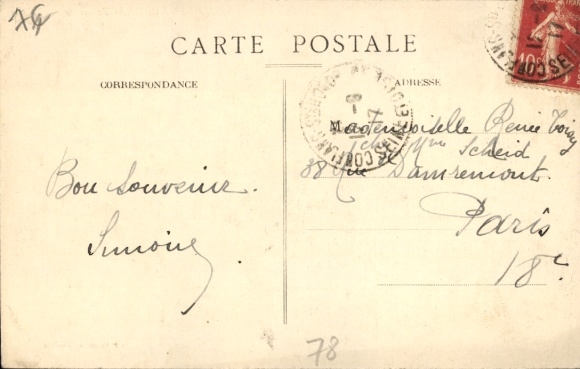 78
CARTE POSTALE
CORRESPONDANCE
ADRESSE
Bon Souvenir.
Simone
Mademoiselle Renée Voiry
chez Mme Scheid
38 Rue Damrémont.
Paris
18e.
10c
78